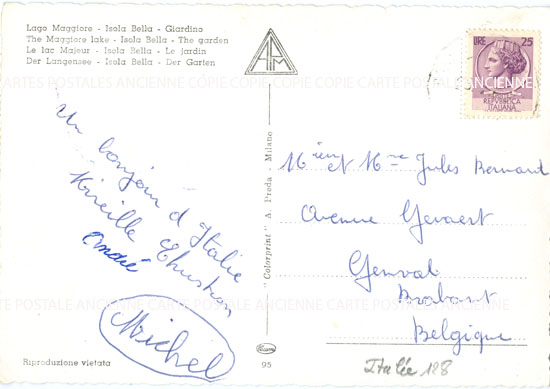 Lago Maggiore - Isola Bella - Giardino
The Maggiore lake - Isola Bella - The garden
Le lac Majeur - Isola Bella - Le jardin
Der Langensee - Isola Bella - Der Garten
LIRE 25
REPVBBLICA
ITALIANA
CARTES POSTALES ANCIENNE COPIE CARTE POSTALE ANCIENNE COPIE
Un bonjour d'Italie
Mireille Christian
André
Michel
"Colorprint" A. Preda - Milano
Mr et Mme Jules Bernard
Avenue Gevaert
Genval
Brabant
Belgique
CARTE POSTALE ANCIENNE CARTE POSTALE ANCIENNE
Riproduzione vietata
95
Italie 128